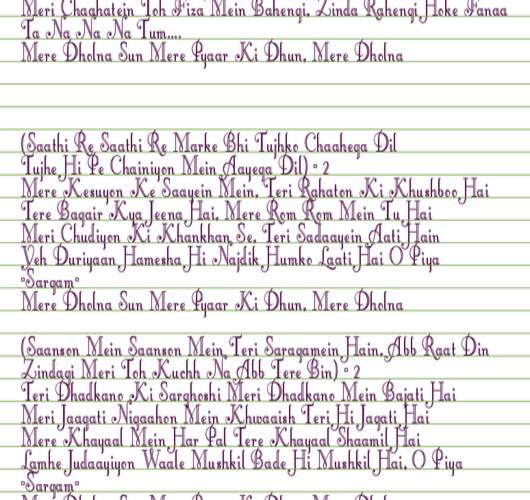 Meri Chaahatein Toh Fiza Mein Bahengi, Zinda Rahengi Hoke Fanaa
Ta Na Na Na Tum....
Mere Dholna Sun Mere Pyaar Ki Dhun, Mere Dholna
(Saathi Re Saathi Re Marke Bhi Tujhko Chaahega Dil
Tujhe Hi Pe Chainiyon Mein Aayega Dil) - 2
Mere Kesuyon Ke Saayein Mein, Teri Rahaton Ki Khushboo Hai
Tere Bagair Kya Jeena Hai, Mere Rom Rom Mein Tu Hai
Meri Chudiyon Ki Khankhan Se, Teri Sadaayein Aati Hain
Yeh Duriyaan Hamesha Hi Najdik Humko Laati Hai O Piya
"Sargam"
Mere Dholna Sun Mere Pyaar Ki Dhun, Mere Dholna
(Saanson Mein Saanson Mein Teri Saragamein Hain, Abb Raat Din
Zindagi Meri Toh Kuchh Na Abb Tere Bin) - 2
Teri Dhadkano Ki Sarghoshi Meri Dhadkano Mein Bajati Hai
Meri Jaagati Nigaahon Mein Khwaaish Teri Hi Jagati Hai
Mere Khayaal Mein Har Pal Tere Khayaal Shaamil Hai
Lamhe Judaayiyon Waale Mushkil Bade Hi Mushkil Hai, O Piya
"Sargam"
Mere Dholna Sun Mere Pyaar Ki Dhun, Mere Dholna